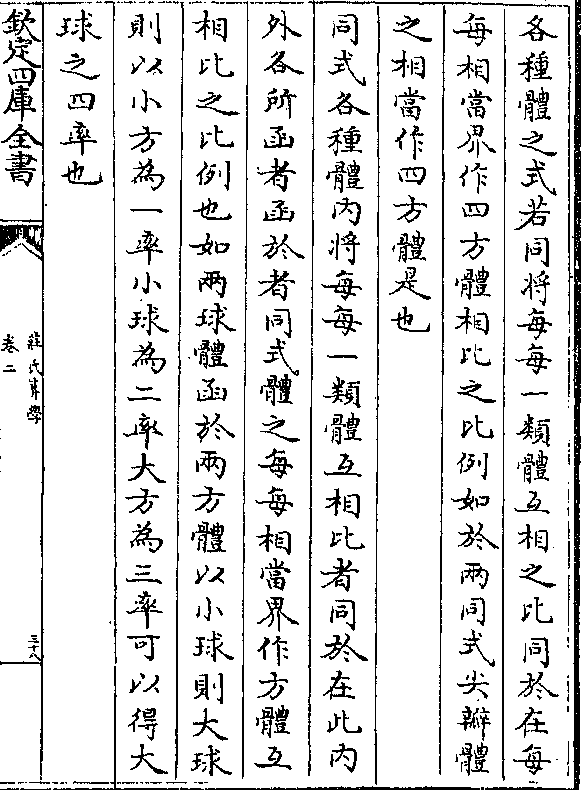 各種體之式若同將每每一類體互相之比同於在每
每相當界作四方體相比之比例如於兩同式尖瓣體
之相當作四方體是也
同式各種體內將每每一類體互相比者同於在此內
外各所函者函於者同式體之每每相當界作方體互
相比之比例也如兩球體函於兩方體以小球則大球
則以小方為一率小球為二率大方為三率可以得大
球之四率也
欽定四庫全書
莊氏算學
卷二
三十八